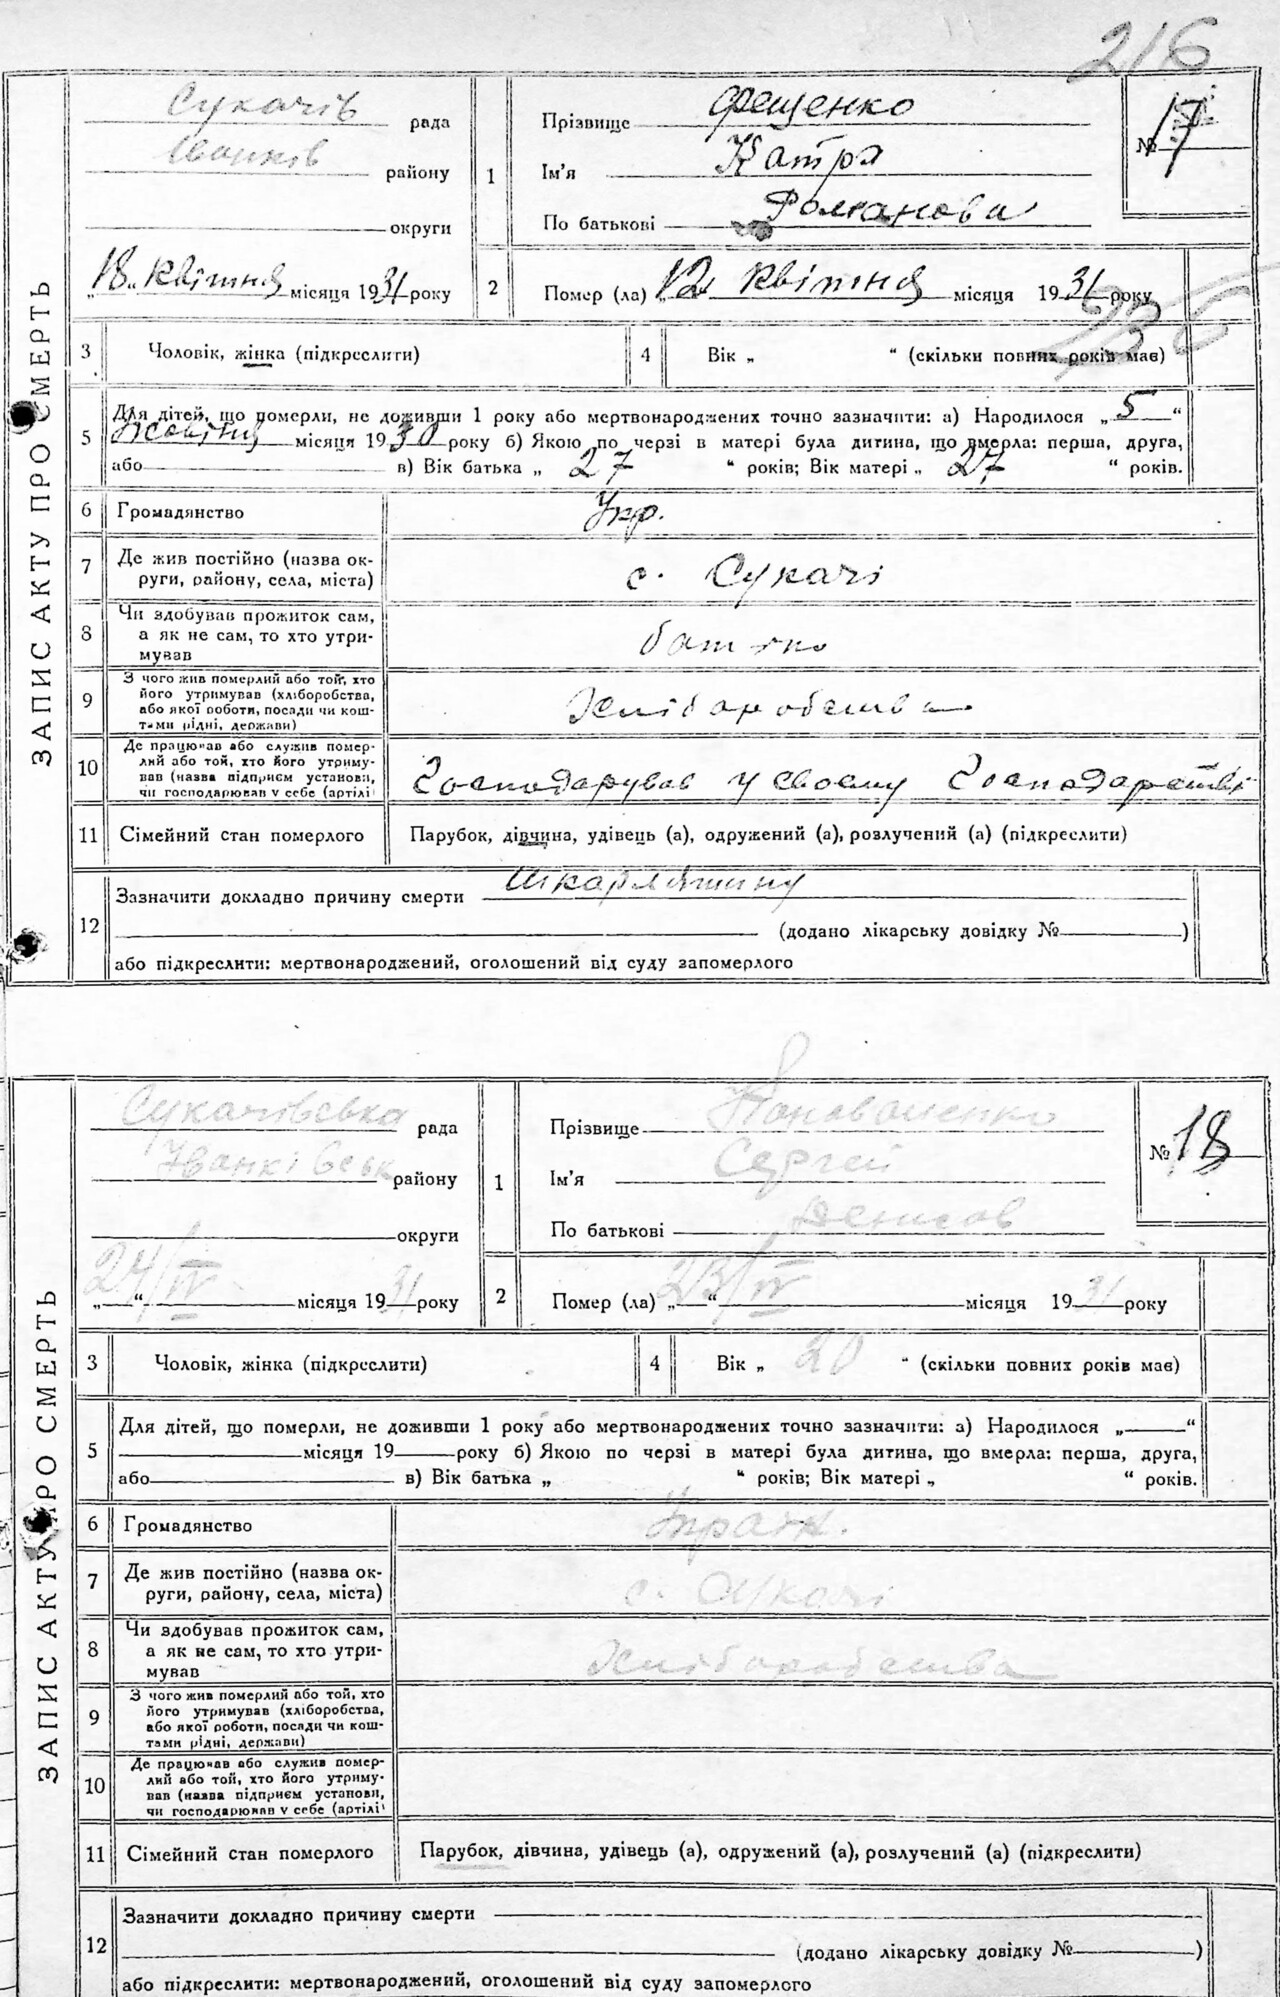 216
ЗАПИС АКТУ ПРО СМЕРТЬ
Сукачів рада
Іванків району
округи
"18" квітня місяця 1931 року
1 Прізвище Фещенко
Ім'я Катря
По батькові Романова
№ 17
2 Помер (ла) 12 квітня місяця 1931 року
236
3 Чоловік, жінка (підкреслити)
4 Вік „ “ (скільки повних років має)
5 Для дітей, що померли, не доживши 1 року або мертвонароджених точно зазначити: а) Народилося „5“
Жовтня місяця 1930 року б) Якою по черзі в матері була дитина, що вмерла: перша, друга,
або в) Вік батька „ 27 “ років; Вік матері „ 27 “ років.
6 Громадянство Укр.
7 Де жив постійно (назва ок-
руги, району, села, міста) с. Сукачі
8 Чи здобував прожиток сам,
а як не сам, то хто утри-
мував батько
9 З чого жив померлий або той, хто
його утримував (хліборобства,
або якої роботи, посади чи кош-
тами рідні, держави) Хліборобства
10 Де працював або служив помер-
лий або той, хто його утриму-
вав (назва підприєм установи,
чи господарював у себе (артілі Господарував у своєму Господарстві
11 Сімейний стан померлого Парубок, дівчина, удівець (а), одружений (а), розлучений (а) (підкреслити)
12 Зазначити докладно причину смерти Шкарлятину
(додано лікарську довідку № )
або підкреслити: мертвонароджений, оголошений від суду запомерлого
ЗАПИС АКТУ ПРО СМЕРТЬ
Сукачівська рада
Іванківськ району
округи
24/IV місяця 1931 року
1 Прізвище
Ім'я Сергей
По батькові Денисов
№ 18
2 Помер (ла) „ “ 23/IV місяця 1931 року
3 Чоловік, жінка (підкреслити)
4 Вік „ 20 “ (скільки повних років має)
5 Для дітей, що померли, не доживши 1 року або мертвонароджених точно зазначити: а) Народилося „ “
місяця 19 року б) Якою по черзі в матері була дитина, що вмерла: перша, друга,
або в) Вік батька „ “ років; Вік матері „ “ років.
6 Громадянство Украін.
7 Де жив постійно (назва ок-
руги, району, села, міста) с. Сукачі
8 Чи здобував прожиток сам,
а як не сам, то хто утри-
мував Хліборобства
9 З чого жив померлий або той, хто
його утримував (хліборобства,
або якої роботи, посади чи кош-
тами рідні, держави)
10 Де працював або служив помер-
лий або той, хто його утриму-
вав (назва підприєм установи,
чи господарював у себе (артілі
11 Сімейний стан померлого Парубок, дівчина, удівець (а), одружений (а), розлучений (а) (підкреслити)
12 Зазначити докладно причину смерти
(додано лікарську довідку № )
або підкреслити: мертвонароджений, оголошений від суду запомерлого